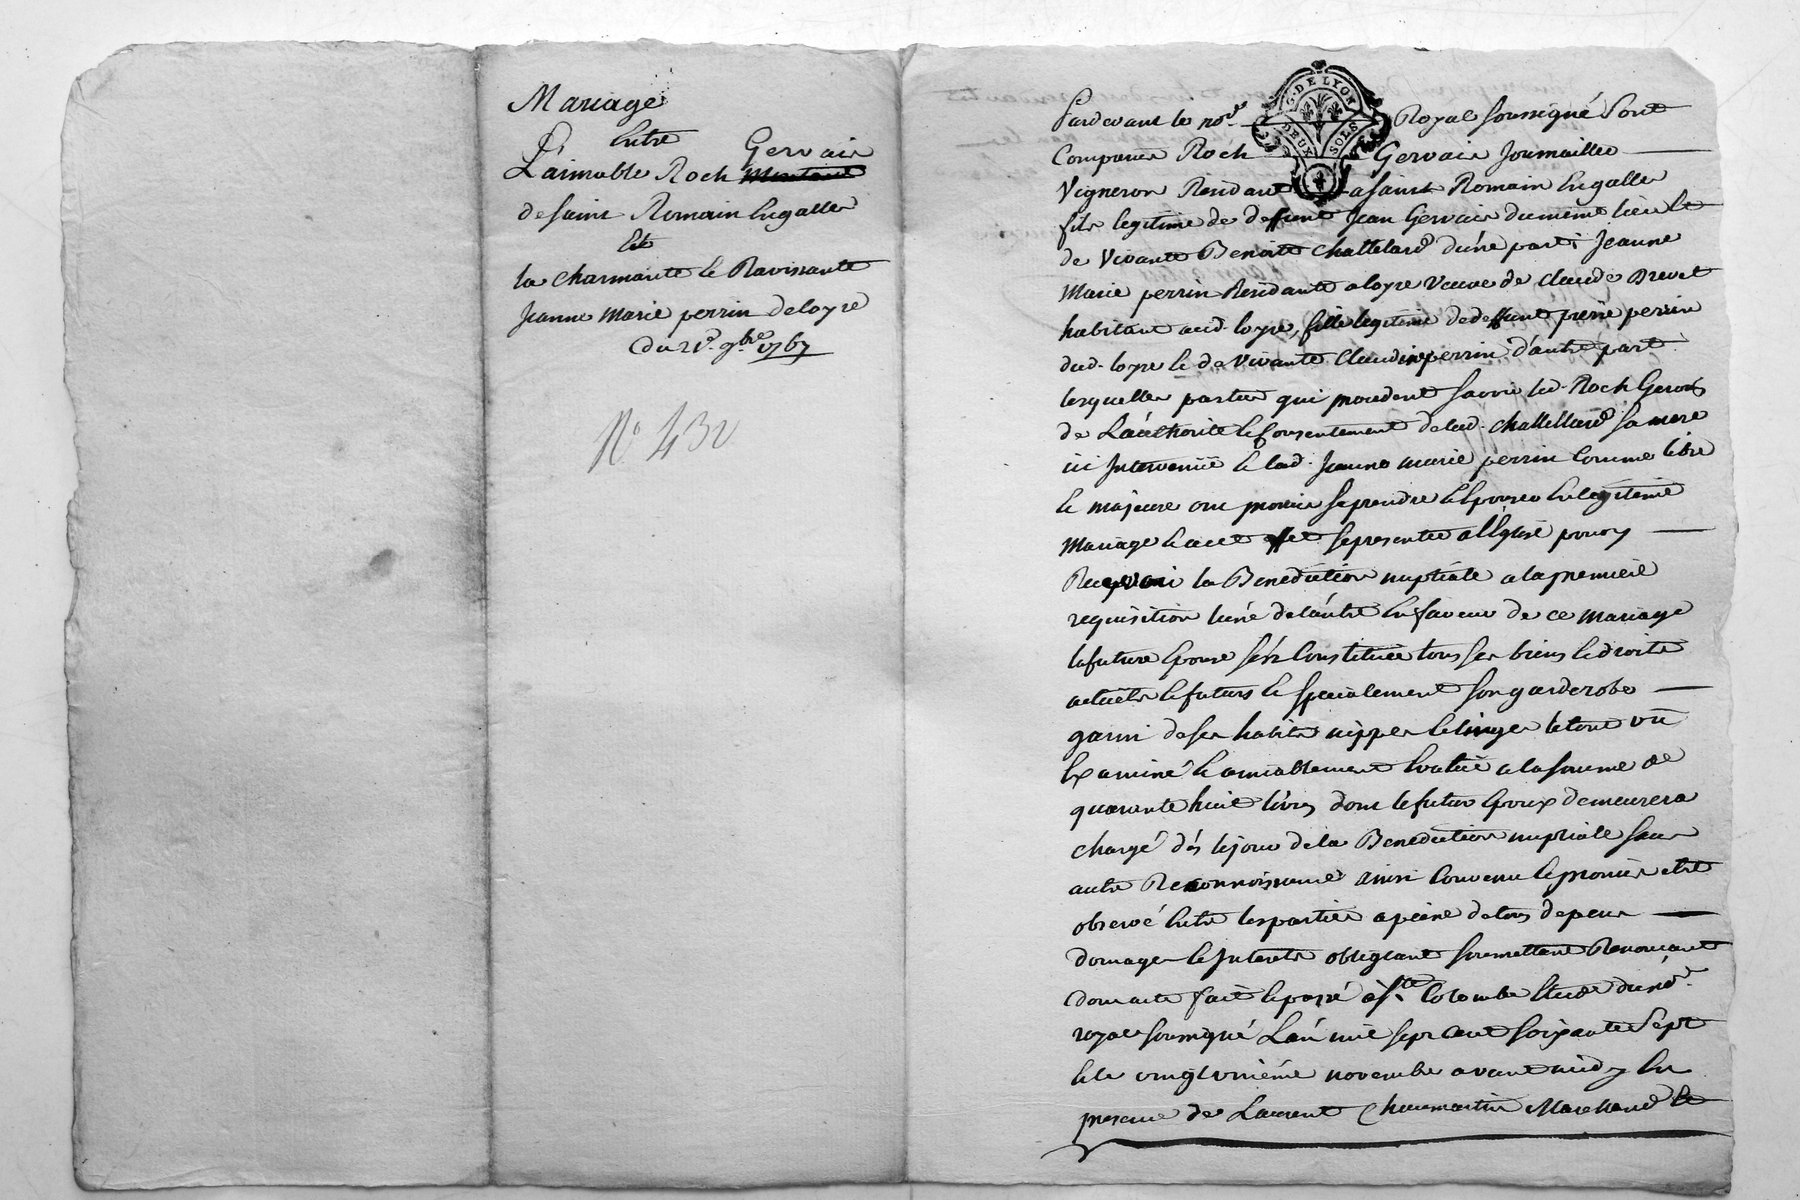 Mariage
Entre
Gervais
L'aimable Roch
de saint Romain Engalle
Et
la charmante et Ravissante
Jeanne Marie perrin deloyre
du 21e. 9bre 1767
N° 432
G. DE LYON
DEUX SOLS
Pardevant le nore Royal soussigné sont
Comparus Roch Gervais Journaillier
Vigneron Residant a saint Romain Engalle
fils legitime de deffunt Jean Gervais dumême lieu et
de vivante Benoitte Chattelard d'une part; Jeanne
Marie perrin Residante a loyre veuve de Claude Brevet
habitant aud. loyre, fille legitime dedeffunt pierre perrin
dud. loyre et de vivante Claudine perrin d'autre part
lesquelles parties qui procedent savoir led. Roch Gervais
de L'authorité et consentement de lad. Chattellard sa mere
ici Intervenüe et lad. Jeanne marie perrin comme libre
et majeure ont promis se prendre et Epouser En legitime
Mariage et a cet effet se presenter a l'Eglise pour y
Recevoir la Benediction nuptiale a la premiere
requisition l'une de l'autre En faveur de ce mariage
la future Epouse s'est Constituée tous ses biens et droits
actuels et futurs et specialement son garderobe
garni de ses habits nippes et linges le tout vü
Examiné et amiablement Evalué a la somme de
quarante huit livres dont le futur Epoux demeurera
chargé dés le jour de la Benediction nuptiale sans
autre Reconnoissance ainsi Convenu et promis etre
observé Entre les parties a peine de tous depens
domages et Interets obligeant soumettant Renonçant
dont acte fait et passé à Ste. Colombe Etude du nore.
royal soussigné L'an mil sept cent soixante sept
et le vingt unième novembre avant midy En
presence de Laurent Chaumartin Marchand et